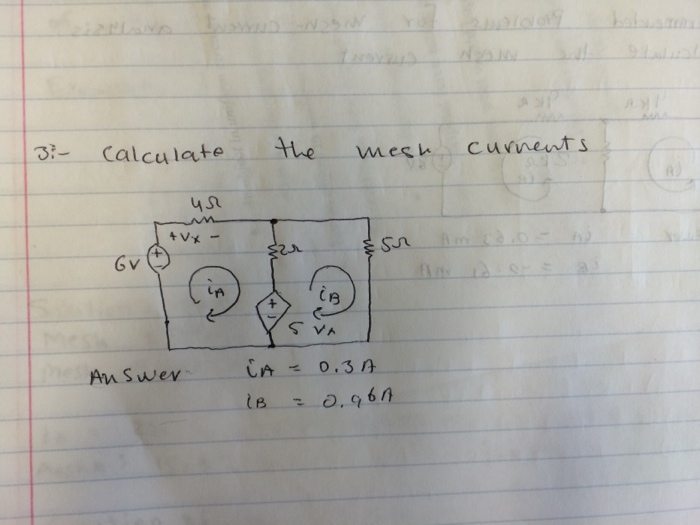 3:- Calculate the mesh currents
4Ω
+ Vx -
6V
+
2Ω
5Ω
iA
iB
+
-
5 VA
Answer iA = 0.3A
iB = 0.96A